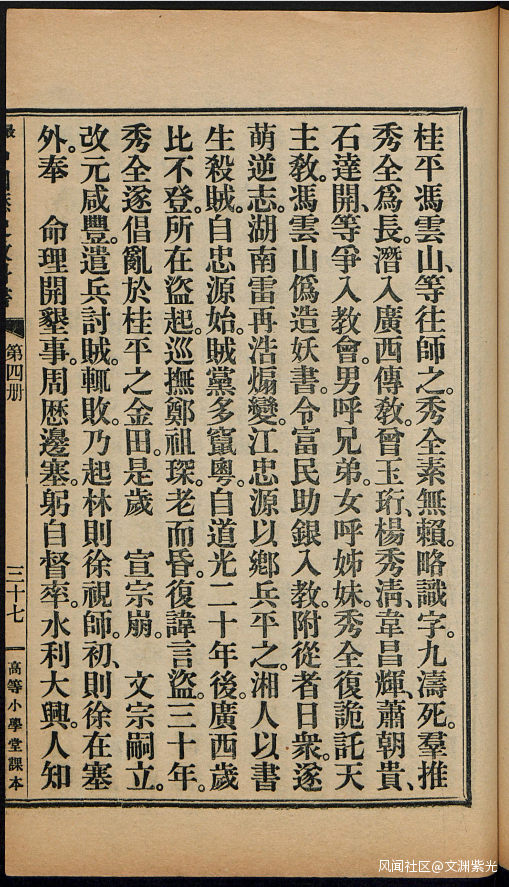 桂平馮雲山、等往師之。秀全素無賴。略識字。九濤死。羣推
秀全爲長。潛入廣西傳敎。曾玉珩、楊秀淸、韋昌輝、蕭朝貴、
石達開、等爭入敎會。男呼兄弟。女呼姊妹。秀全復詭託天
主敎。馮雲山僞造妖書。令富民助銀入敎。附從者日衆。遂
萌逆志。湖南雷再浩煽變。江忠源以鄉兵平之。湘人以書
生殺賊。自忠源始。賊黨多竄粵。自道光二十年後。廣西歲
比不登。所在盜起。巡撫鄭祖琛。老而昏。復諱言盜。三十年。
秀全遂倡亂於桂平之金田。是歲　宣宗崩。　文宗嗣立。
改元咸豐。遣兵討賊。輒敗。乃起林則徐視師。初、則徐在塞
外。奉　命理開墾事。周歷邊塞。躬自督率。水利大興。人知
第四册
三十七
高等小學堂課本
风闻社区@文渊紫光